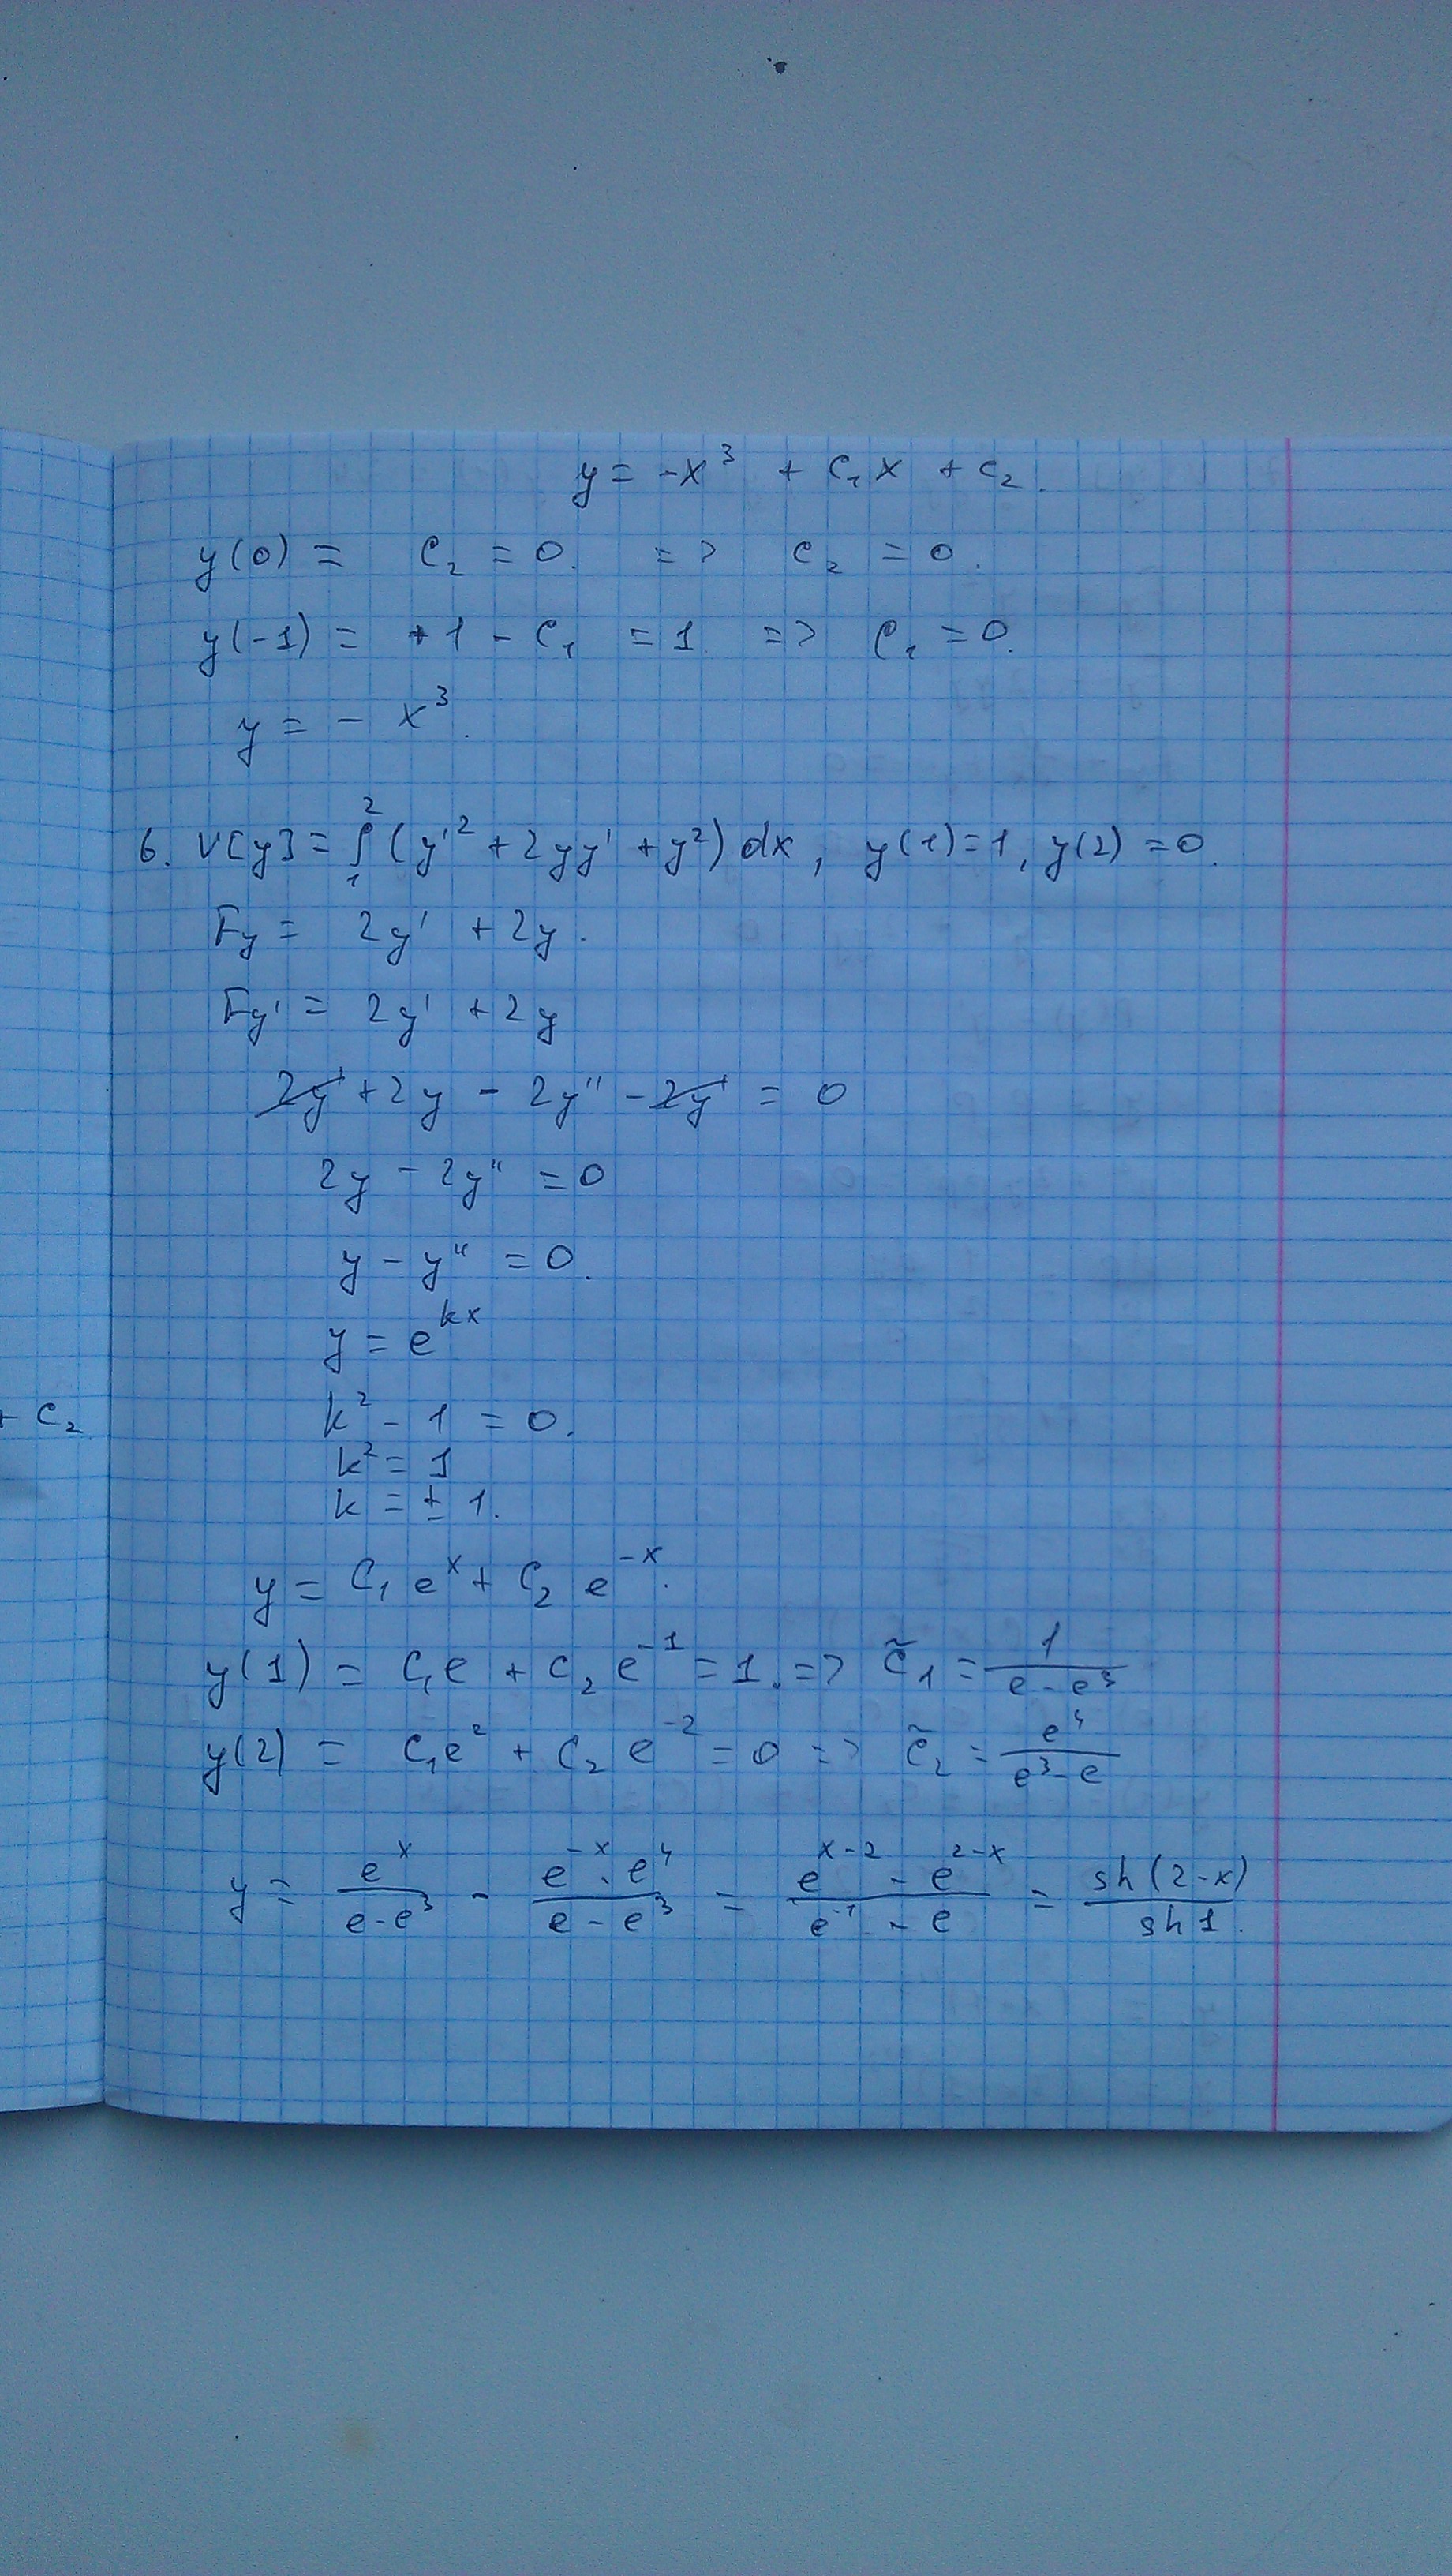 y = -x³ + C₁x + C₂.
y(0) = C₂ = 0. => C₂ = 0.
y(-1) = +1 - C₁ = 1 => C₁ = 0.
y = - x³.
6. V[y] = ∫₁² (y'² + 2yy' + y²) dx, y(1)=1, y(2) = 0.
Fy = 2y' + 2y.
Fy' = 2y' + 2y
2y' + 2y - 2y'' - 2y' = 0
2y - 2y'' = 0
y - y'' = 0.
y = e^{kx}
k² - 1 = 0.
+ C₂
k² = 1
k = ± 1.
y = C₁ e^x + C₂ e^{-x}.
y(1) = C₁e + C₂ e^{-1} = 1. => C̃₁ = 1/(e - e³)
y(2) = C₁e² + C₂ e^{-2} = 0 => C̃₂ = e⁴/(e³ - e)
y = e^x/(e - e³) - (e^{-x} · e⁴)/(e - e³) = (e^{x-2} - e^{2-x})/(e^{-1} - e) = sh(2-x)/sh 1.